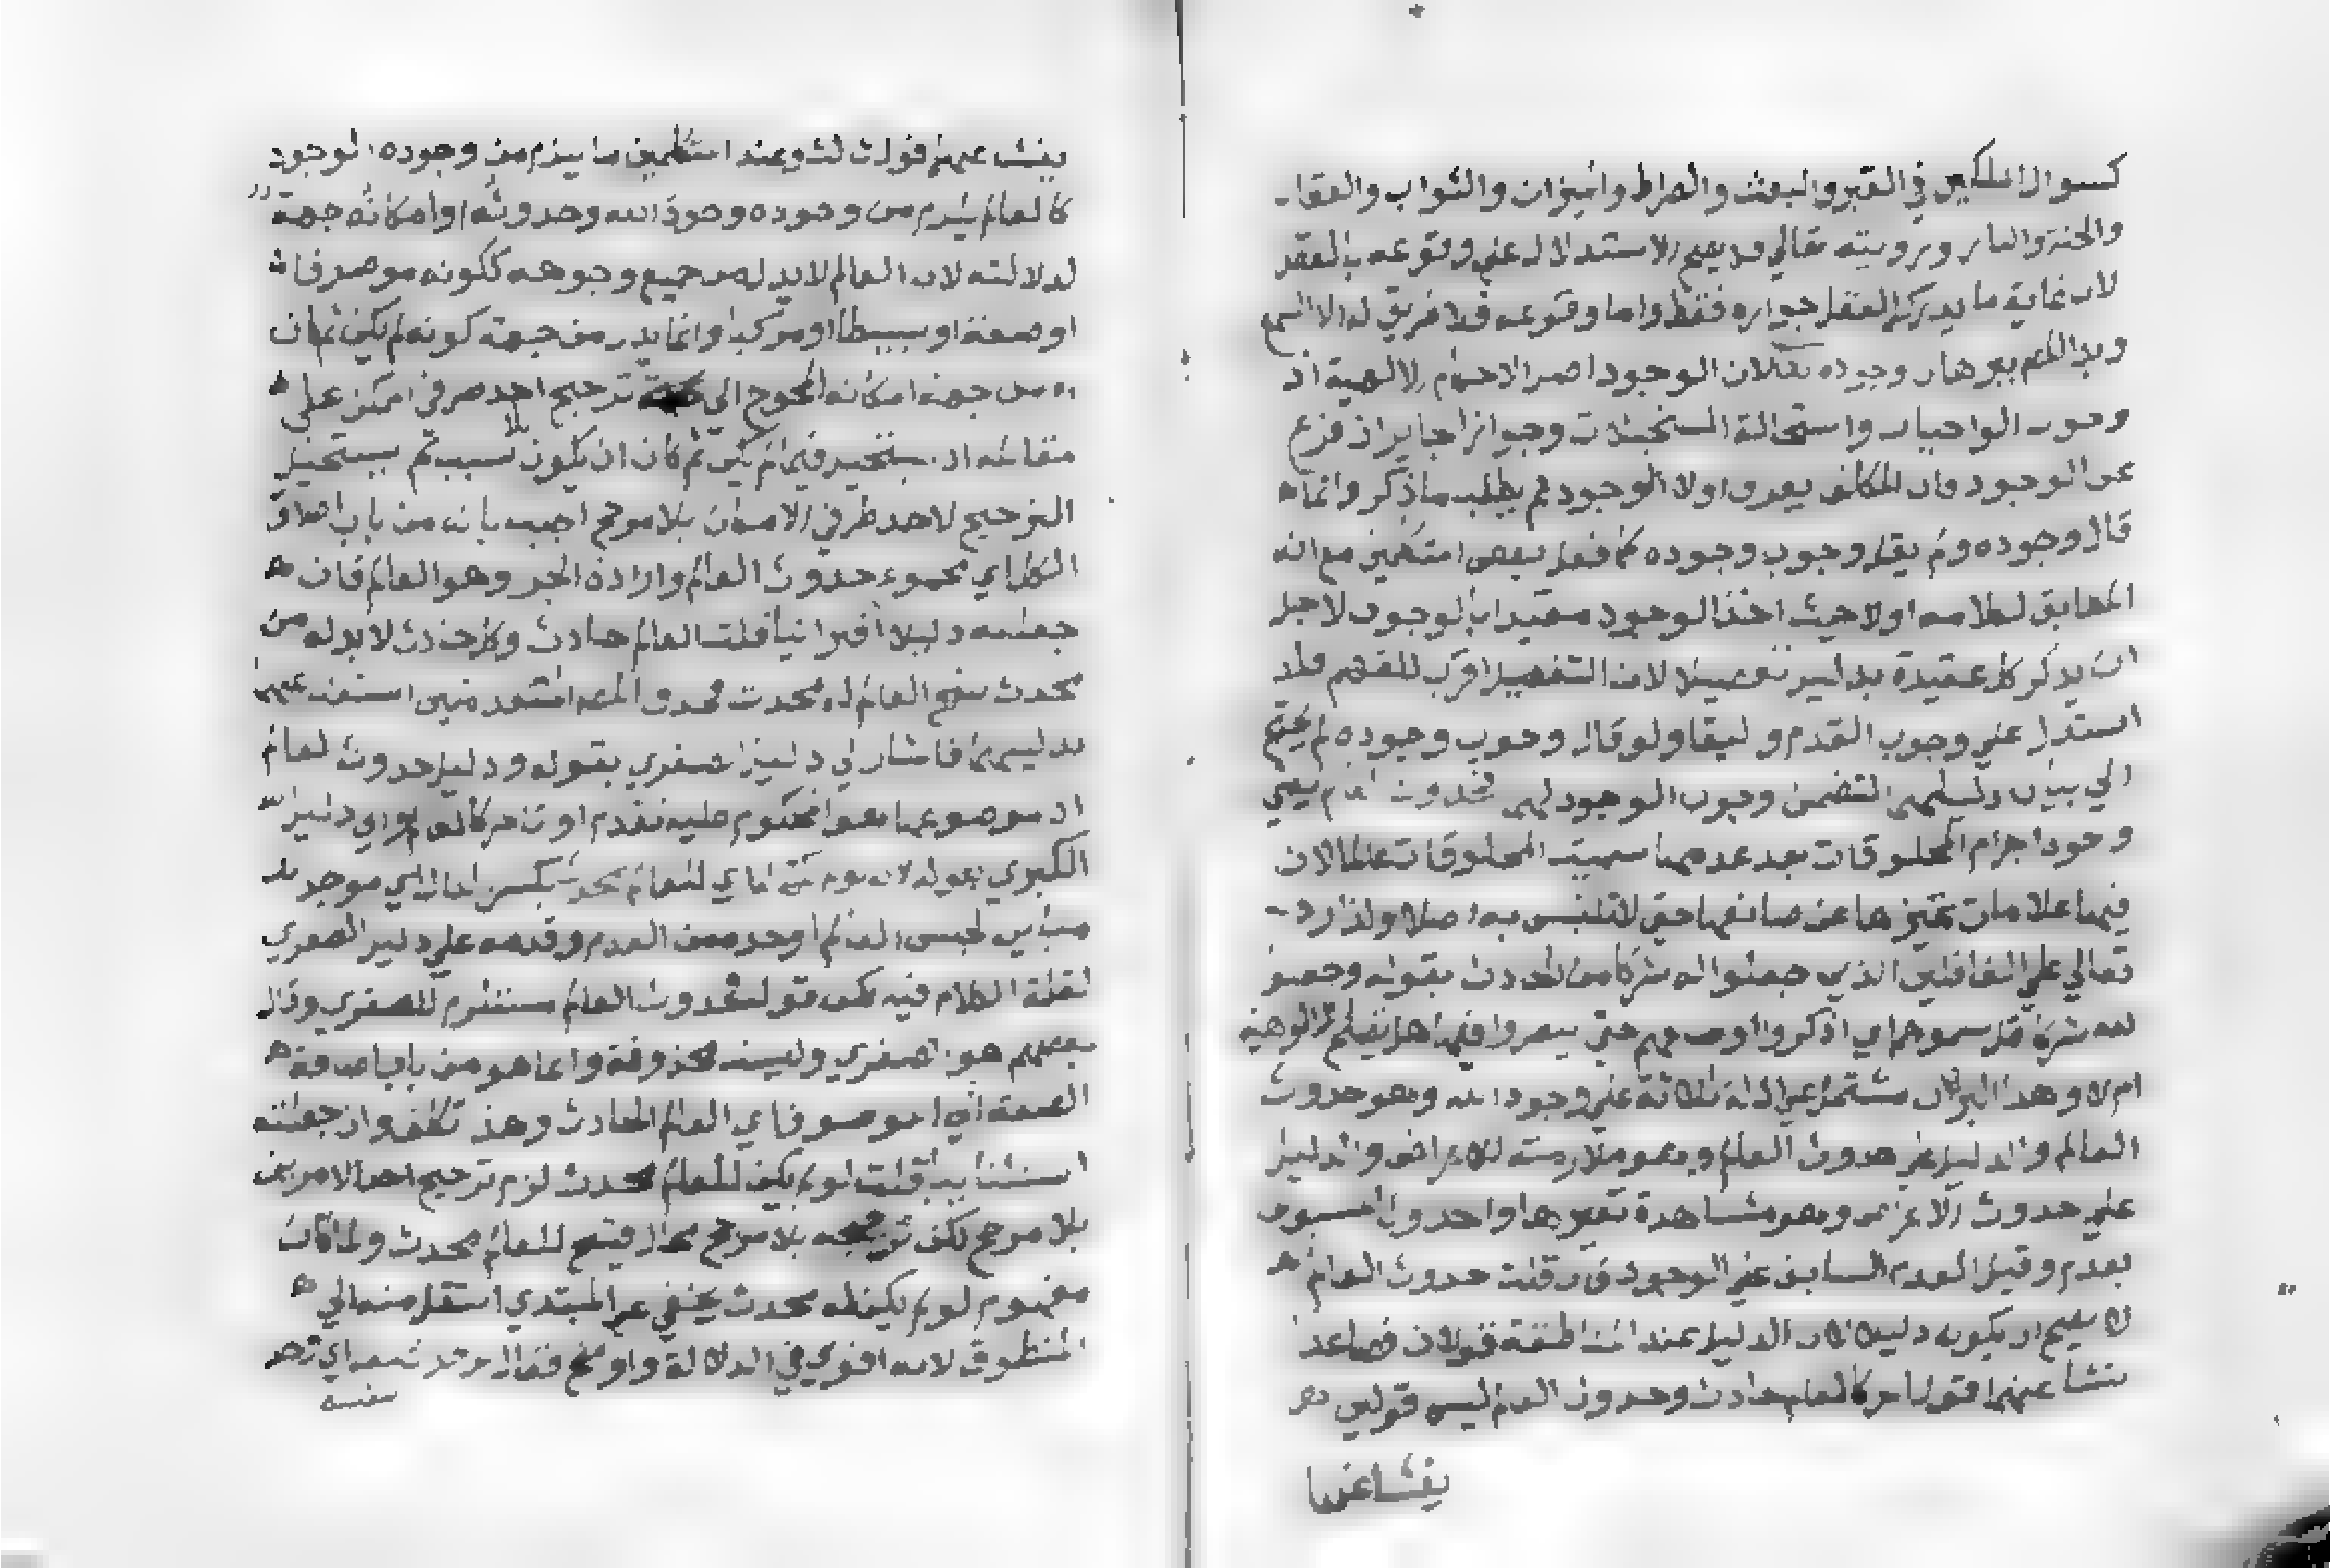 كسوال الملكين في القبر والبعث والصراط والميزان والثواب والعقا
والجنة والنار ورويته تعالي فلا يصح الاستدلال علي وقوعه بالعقل
لان غاية ما يدركه العقل جوازه فقط واما وقوعه فلا طريق له الا السمع
وبدا المص ببرهان وجوده تعالى لان الوجود اصل الاحكام الالهية اذ
وجوب الواجبات واستحالة المستحيلات وجواز الجايزات فرع
عن الوجود فان المكلف يعرف اولا الوجود ثم يطلب ما ذكر وانما
قال وجوده ولم يقل وجوب وجوده كما فعل بعض المتكلمين مع انه
المطابق لكلامه اولا حيث اخذ الوجود مقيدا بالوجوب لاجل
ان يذكر كل عقيدة بدليل تفصيلا لان التفصيل اقرب للفهم فلذ
استدل علي وجوب القدم والبقا ولو قال وجوب وجوده لم يحتج
الي بيان دليلهما لتضمن وجوب الوجود لهما فحدوث العالم يعني
وجود اجرام المخلوقات بعد عدمها سميت المخلوقات عالما لان
فيها علامات تميزها عن صانعها حتي لا تلتبس به اصلا ولذا رد
تعالي علي الغافلين الذين جعلوا له شركا من الحوادث بقوله وجعلو
لله شركا قل سموهم اي اذكروا اوصافهم حتي ينظروا فيها هل تصلح للالوهية
ام لا وهذا البرهان مشتمل علي ادلة ثلاثة علي وجود الله وهو حدوث
العالم والدليل علي حدوث العالم وهو ملازمته للاعراض والدليل
علي حدوث الاعراض وهو مشاهدة تغيرها والحدوث المسبوق
بعدم وقيل العدم السابق علي الوجود فان قلت حدوث العالم
لا يصح ان يكون دليلا لان الدليل عند المناطقة قولان فصاعدا
ينشا عنهما قول اخر كالعالم حادث وحدوث العالم ليس قولين
ينشا عنهما
ينشا عنهما قول ثالث وعند المتكلمين ما يلزم من وجوده الوجود
كالعالم يلزم من وجوده وجود الله وحدوثه او امكانه جهة
لدلالته لان العالم لا يدل من جميع وجوهه ككونه موصوفا
او صفة او بسيطا او مركبا وانما يدل من جهة كونه لم يكن ثم كان
او من جهة امكانه المحوج الي ترجيح احد طرفي الممكن علي
مقابله اذ يستحيل فيما لم يكن ثم كان ان يكون بلا سبب ثم يستحيل
الترجيح لاحد طرفي الامكان بلا مرجح اجيب بانه من باب اطلاق
الكل اي مجموع حدوث العالم وارادة الجز وهو العالم فان
جعلته دليلا اقترانيا قلت العالم حادث وكل حادث لا بد له من
محدث ينتج العالم له محدث فحذف المص المقدمتين استغنا عنهما
بدليلهما فاشار الي دليل الصغري بقوله ودليل حدوث العالم
اذ موضوعها هو المحكوم عليه تقدم او تاخر كالعالم واي دليل
الكبري بقوله لانه لو لم يكن اي للعالم محدث بكسر الدال اي موجد
مباين لجنس العالم اوجده من العدم وقدمه علي دليل الصغري
لقلة الكلام فيه لكن قوله حدوث العالم مستلزم للصغري وقال
بعضهم هو الصغري وليست محذوفة وانما هو من باب اضافة
الصفة الي الموصوف اي العالم الحادث وهذا تكلف وان جعلته
استثنائيا قلت لو لم يكن للعالم محدث لزم ترجيح احد الامرين
بلا مرجح لكن ترجيحه بلا مرجح محال فينتج للعالم محدث ولما كان
مفهوم لو لم يكن له محدث يخفي علي المبتدي استقل منه الي
المنطوق لانه اقوي في الدلالة واوضح فقال بل حدث بنفسه اي
بنفسه